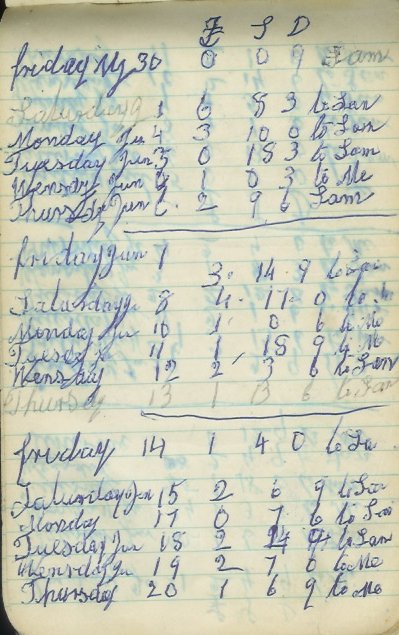 £ S D
friday My 30 0 0 9 Sam
Saturday 1 6 8 3 to Sam
Monday Jun 4 3 10 0 to Sam
Tuesday Jun 5 0 18 3 to Sam
Wensday Jun 1 0 3 to Me
Thursday Jun 6 2 9 6 Sam
friday Jun 7 3 14 9 to Sam
Saturday 8 4 17 0 to
Monday Ju 10 1 0 6 to Me
Tuesd 11 1 18 9 to Me
Wensday 12 2 3 6 to Sam
Thursy 13 1 13 6 to Sam
friday 14 1 4 0 to Sa
Saturday Jun 15 2 6 9 to Sam
Monday 17 0 7 6 to Sam
Tuesday Jun 18 2 to Sam
Wensday Ju 19 2 7 6 to Me
Thursday 20 1 6 9 to Me